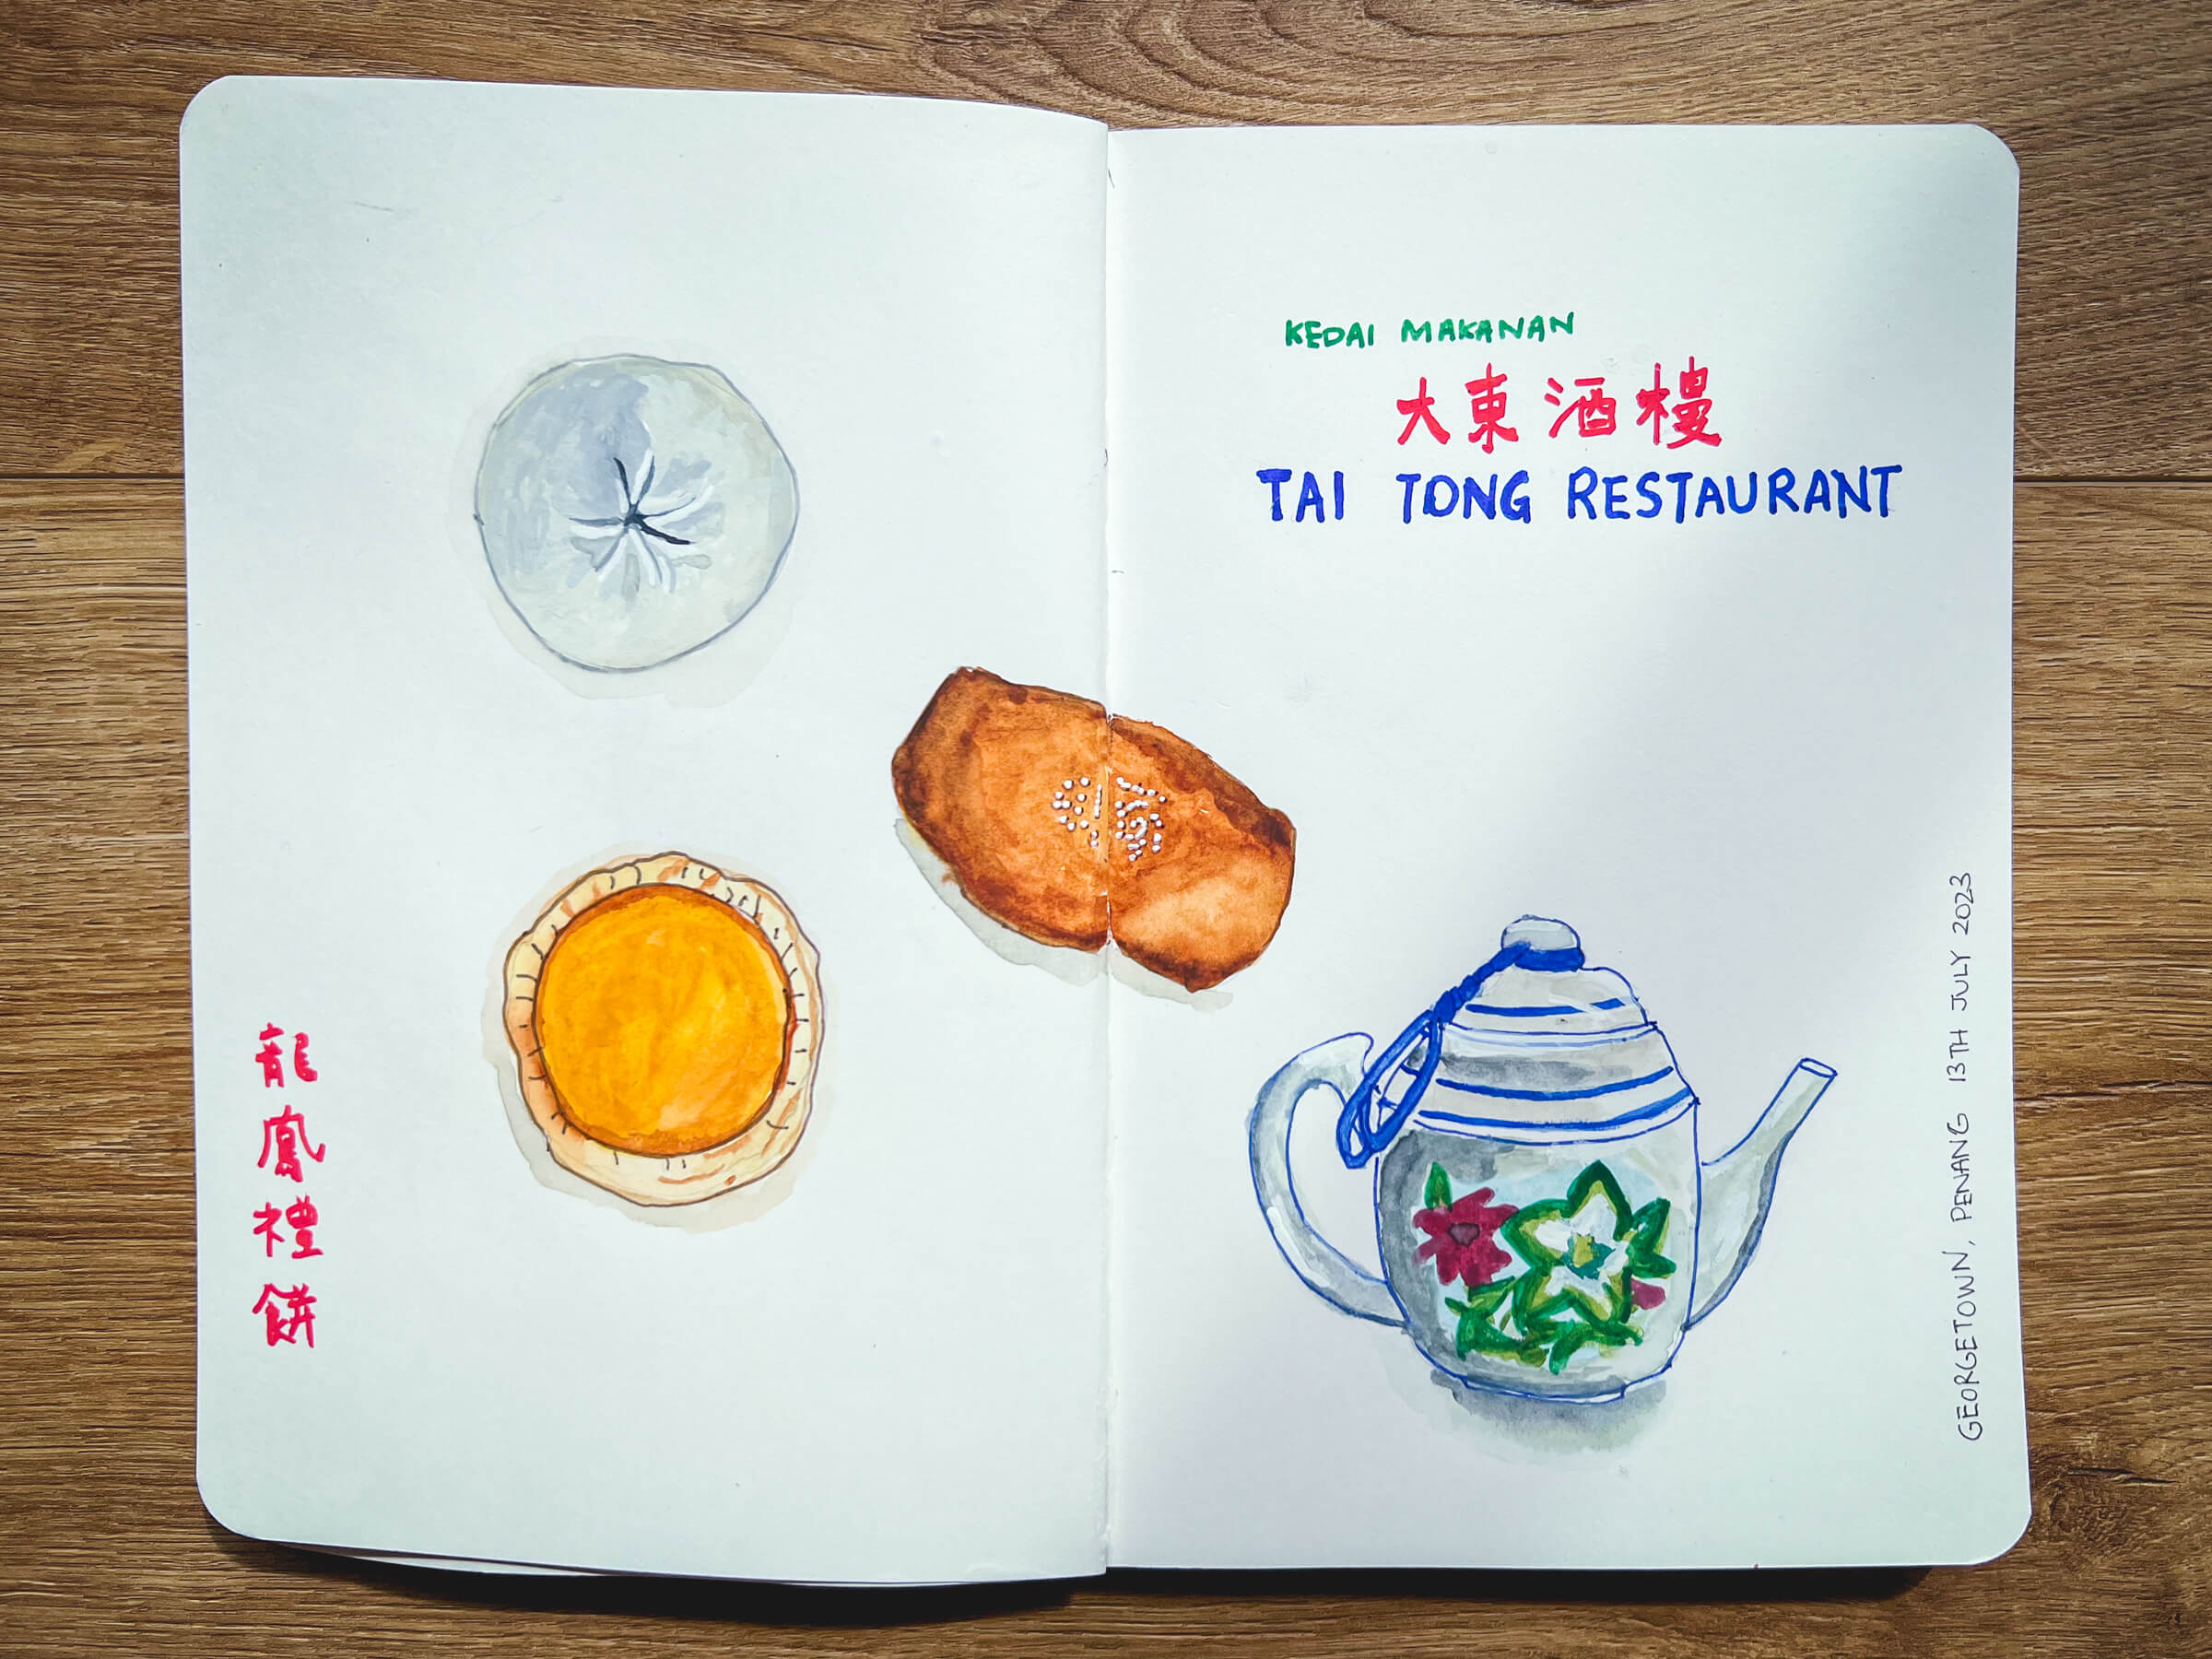 龍鳳禮餅
KEDAI MAKANAN
大東酒樓
TAI TONG RESTAURANT
GEORGETOWN, PENANG 13TH JULY 2023